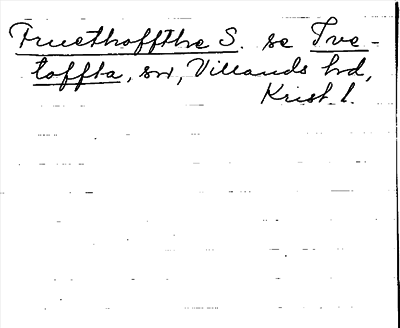 Fruethoffthe S. se Tve-
toffta, sn, Villands hd,
Krist. l.